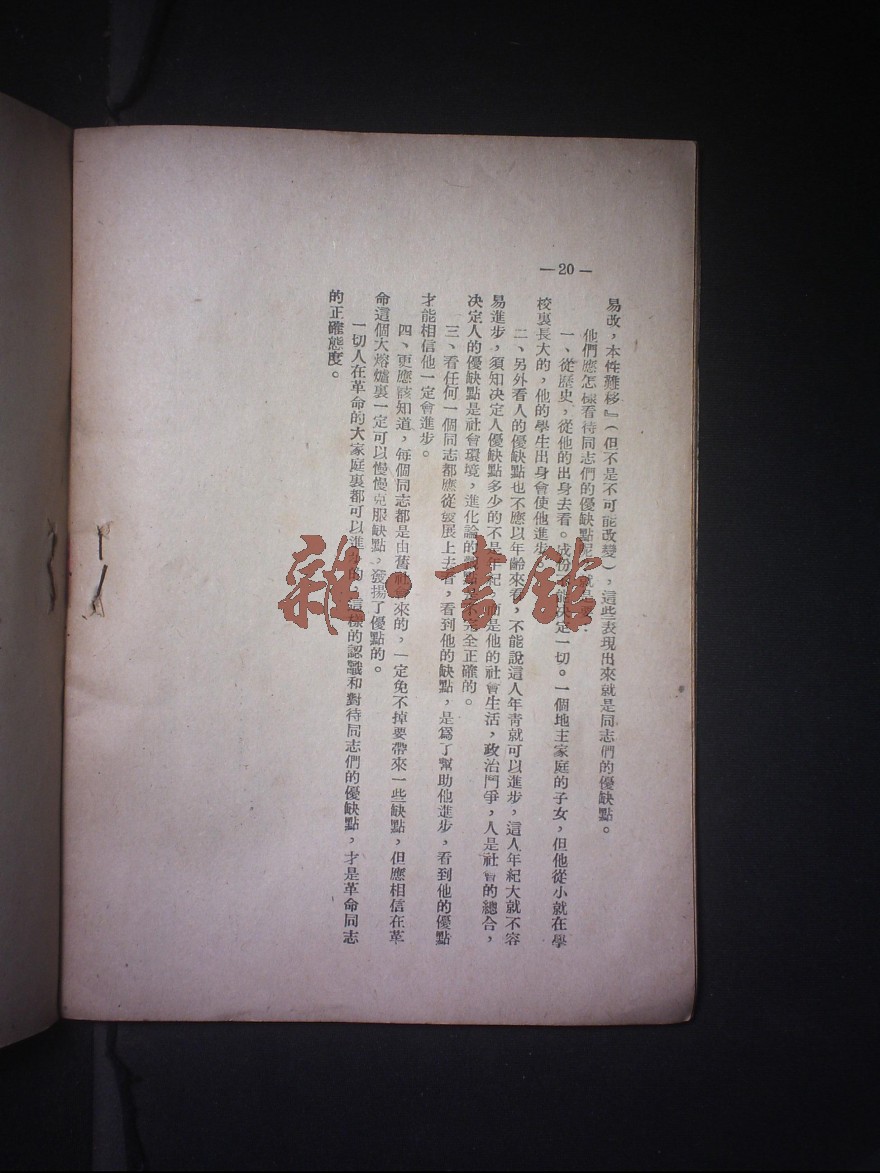 —20—
易改，本性難移』（但不是不可能改變），這些表現出來就是同志們的優缺點。
他們應怎樣看待同志們的優缺點呢
一、從歷史，從他的出身去看。成份 决定一切。一個地主家庭的子女，但他從小就在學
校裏長大的，他的學生出身會使他進步。
二、另外看人的優缺點也不應以年齡來看，不能說這人年青就可以進步，這人年紀大就不容
易進步，須知决定人優缺點多少的不是年紀 而是他的社會生活，政治鬥爭，人是社會的總合，
决定人的優缺點是社會環境，進化論的 點 不完全正確的。
三、看任何一個同志都應從發展上去看，看到他的缺點，是爲了幫助他進步，看到他的優點
才能相信他一定會進步。
四、更應該知道，每個同志都是由舊社會來的，一定免不掉要帶來一些缺點，但應相信在革
命這個大熔爐裏一定可以慢慢克服缺點，發揚了優點的。
一切人在革命的大家庭裏都可以進步的，這樣的認識和對待同志們的優缺點，才是革命同志
的正確態度。
雜·書館